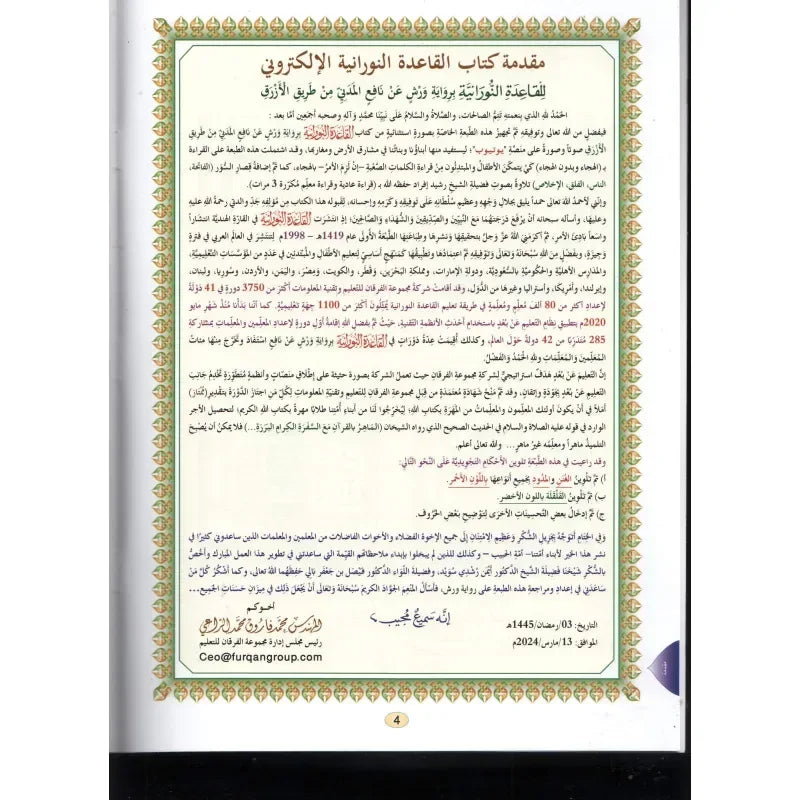 مقدمة كتاب القاعدة النورانية الإلكتروني
لِلْقَاعِدَةِ النُّورَانِيَّةِ بِرِوَايَةِ وَرْشٍ عَنْ نَافِعٍ المَدَنِيِّ مِنْ طَرِيقِ الْأَزْرَقِ
الحَمْدُ للهِ الذي بنعمتِهِ تَتِمُّ الصالحات، والصَّلاةُ والسَّلامُ عَلى نَبِيِّنَا محمَّدٍ وآلِهِ وصحبِهِ أجمَعِين أمَّا بعد :
فبفضلٍ من الله تعالى وتوفيقِهِ تمَّ تجهيز هذه الطَّبعة الخاصّة بصورةٍ استثنائيةٍ من كتاب القَاعِدَة النُّورَانيَّة بِروَايَةِ وَرْشٍ عَن نَافِعٍ المَدَنِيِّ مِن طَرِيقِ
الأَزْرَقِ صوتاً وصورةً على منصَّةِ "يوتيوب"؛ ليستفيد منها أبناؤنا وبناتُنا في مشارق الأرض ومغاربها، وقد اشتملت هذه الطبعة على القراءة
بـ (الهجاء وبدون الهجاء) كَيْ يتمكّنَ الأطفالُ والمبتدئون مِن قراءةِ الكلمات الصَّعْبةِ –إنْ لَزِمَ الأمرُ– بالهجاء، كما تمَّ إضافةُ قِصَارِ السُّوَر (الفاتحة،
الناس، الفلق، الإخلاص) تلاوةً بصوتِ فضيلةِ الشيخ رشيد إفراد حفظه الله بـ (قراءة عادية وقراءة معلِّم مكرّرة 3 مرات).
وإنِّي لأحمدُ اللهَ تعالى حمداً يليق بجلالِ وَجْهِهِ وعظيمِ سُلْطَانِهِ عَلَى تَوفيقِهِ وكَرَمِهِ وإحسانه، لِقَبولِه هذا الكتاب مِن مؤلِّفِه جَدِّي والدتي رحمةُ اللهِ عليهِ
وعليها، وأسأله سبحانه أنْ يرْفعَ درَجَتَهُما مَعَ النَّبِيِّينَ والصِّدِّيقِينَ والشُّهَدَاءِ والصَّالِحِينَ؛ إذ انتشَرَت القَاعِدَة النُّورَانيَّة في القارّةِ الهنديَّةِ انتشاراً
واسعاً بادئَ الأمرِ، ثمَّ أكرَمَني اللهُ عزَّ وجلَّ بتحقيقِهَا ونشرِها وطباعَتِها الطَّبعَةَ الأُولى عام 1419هـ – 1998م لِتنتشِرَ في العالم العربيِّ في فترةٍ
وَجِيزَةٍ، وبفضلٍ مِنَ اللهِ سُبْحَانَهُ وَتعَالَى وتَوْفِيقِهِ تمَّ اعتمادُها وتطبيقُها كَمَنْهَجٍ أساسيٍّ لِتعليمِ الأطفالِ والمُبتَدئينَ في عَدَدٍ مِن المُؤسَّسَاتِ التَّعليميَّةِ،
والمدارِسِ الأهليَّةِ والحُكُومِيَّةِ بالسُّعوديَّةِ، ودولةِ الإمارات، ومملكةِ البَحْرَيْن، وقَطَر، والكويت، ومِصر، واليمن، والأردن، وسوريا، ولبنان،
وإيرلندا، وأمريكا، وأستراليا وغيرها من الدُّوَل، وقد أقامتْ شركةُ مجموعة الفرقان للتَّعليم وتقنية المعلومات أكثرَ من 3750 دورة في 41 دَوْلَةً
لإعدادِ اكثر من 80 ألفَ مُعلِّمٍ ومُعلِّمةٍ في طريقة تعليم القاعدة النورانية يُمثِّلُونَ أكثرَ من 1100 جِهَةٍ تَعْليميَّةٍ. كما أننا بَدَأنا مُنذُ شَهْرِ مايو
2020م بتطبيقِ نِظَامِ التَّعليمِ عَنْ بُعْدٍ باستخدام أحدَثِ الأنظمةِ التِّقنية، حَيْثُ تمَّ بفضلِ اللهِ إقامةُ أوَّلِ دورةٍ لإعدادِ المعلِّمينَ والمعلِّماتِ بمشارَكةِ
285 مُتَدَرِّبًا من 42 دولة حَوْلَ العالَمِ، وكذلك أُقِيمَتْ عِدَّةُ دَوْرَاتٍ في القَاعِدَة النُّورَانيَّة عَنْ بُعْدٍ استفادَ وتخرَّجَ مِنْهَا مئاتُ
المُعَلِّمِينَ وَالمُعَلِّمَاتِ وللهِ الحَمْدُ وَالفَضْلُ.
إنَّ التَّعليمَ عَنْ بُعْدٍ هَدفٌ استراتيجيٌّ لشركةِ مجموعةِ الفرقان حيث تعملُ الشركة بصورة حثيثة على إطلاقِ منصَّاتٍ وأنظمةٍ مُتَطوِّرَةٍ تَخْدِمُ جَانِبَ
التعليم عَنْ بعدٍ بِجَوْدَةٍ وإتقانٍ، وقد تمَّ مَنْحُ شهَادَةٍ مُعتمَدَةٍ من قِبَلِ مجموعة الفرقان للتعليم وتقنية المعلومات لِكُلِّ مَنِ اجتازَ الدَّوْرَةَ بتقديرِ(مُمْتَاز)
أملاً في أنْ يكونَ أولئك المعلِّمون والمعلِّماتُ من المَهَرةِ بكتاب الله؛ لِيُخَرِّجُوا لَنَا من أبناءِ أمَّتِنا طلابًا مهرةً بكتاب اللهِ الكريم؛ لتحصيل الأجر
الوارد في قوله عليه الصلاة والسلام في الحديث الصحيح الذي رواه الشيخان (المَاهِرُ بالقرآن مَعَ السَّفَرةِ الكِرامِ البَرَرَة...) فلا يمكنُ أن يُصْبِحَ
التلميذُ ماهراً ومعلِّمُه غيرُ ماهرٍ... والله تعالى أعلم.
وقد راعيت في هذه الطَّبْعَةِ تلوين الأحْكَامِ التَّجْويديَّةِ عَلَى النَّحْوِ التَّالي:
أ) تمَّ تلْوِينُ الغُنَنِ والمُدُودِ بجَمِيعِ أنوَاعِهَا باللَّوْنِ الأحْمَرِ.
ب) تمَّ تلْوِينُ القَلْقَلَةِ باللون الأخضر.
ج) تمَّ إدخَالُ بعضِ التَّحْسِينَاتِ الأخرَى لِتَوْضِيحِ بَعْضِ الحُرُوف.
وَفِي الخِتامِ أَتَوَجَّهُ بِجَزِيلِ الشُّكْرِ وَعَظِيمِ الامْتِنَانِ إلَى جَميعِ الإخوة الفضلاء والأخوات الفاضلات من المعلمين والمعلمات الذين ساعدوني كثيرًا في
نشر هذا الخَيرِ لأبناء أمَّتنا– أمّةِ الحبيب – وكذلك للذين لم يبخلوا بإبداء ملاحظاتهم القيّمة التي ساعدتني في تطوير هذا العمل المبارك وأخُصُّ
بالشُّكْرِ شَيْخَنَا فَضِيلَةَ الشَّيْخِ الدّكتور أَيْمَن رُشْدِي سُوَيْد، وفضيلة اللّواء الدّكتور فَيْصَل بن جَعْفَر بَالي حَفِظَهُما اللهُ تعالى، وكما أشكُرُ كُلَّ مَنْ
سَاعَدَنِي في إعدادِ ومراجعةِ هذه الطبعةِ على رواية ورش، فأسأَلُ المنْعِمَ الجَوَّادَ الكريمَ سُبْحَانَهُ وَتَعَالَى أنْ يَجْعَلَ ذلك في مِيزَانِ حَسَنَاتِ الجَمِيعِ...
إنَّه سَمِيعٌ مُجِيب
أخـوكـم
المهندس محمد فاروق محمد الراعي
رئيس مجلس إدارة مجموعة الفرقان للتعليم
Ceo@furqangroup.com
التاريخ: 03/رمضان/1445هـ
الموافق: 13/مارس/2024م
مقدمة
4